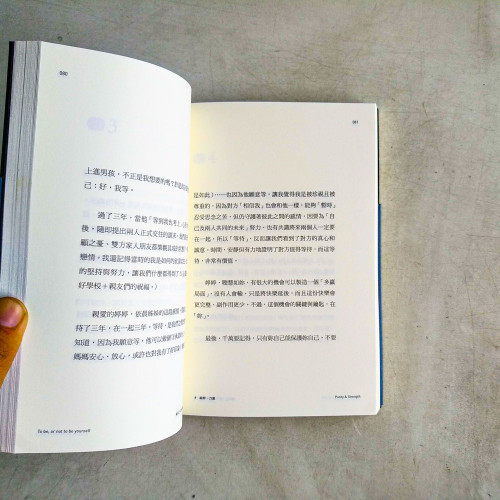 080
上進男孩，不正是我想要的嗎？於是
己：好，我等。
過了三年，當他「等到我也考上
後，隨即提出兩人正式交往的
顧之憂，雙方家人朋友都樂觀
戀情。我還記得當時的我是如何
的堅持與努力，讓我們什麼都得到了
好學校＋親友們的祝福。）
親愛的婷婷，依晨姊姊的這
待了三年，在一起三年，等待，是
知道，因為我願意等，他可以
媽媽安心，放心，或許也對我有了
To be, or not to be yourself
081
是如此）……也因為他願意等，讓我覺得我是被珍視且被
尊重的，因為對方「相信我」也會和他一樣，能夠「暫時」
忍受思念之苦，但仍守護著彼此之間的感情，因要為「自
己及兩人共同的未來」努力，也有共識將來兩個人一定要
在一起，所以「等待」，反而讓我們看到了對方的真心和
誠意，時間，安靜但有力地證明了對方值得等待，而這等
待，非常有價值。
婷婷，聰慧如妳，有很大的機會可以製造一個「多贏
局面」，沒有人會輸，只是將快樂延後，而且這份快樂會
更完整，副作用更少，不過，這個機會的關鍵與鑰匙，在
「妳」。
最後，千萬要記得，只有妳自己能保護妳自己，不要
Purity & Strength